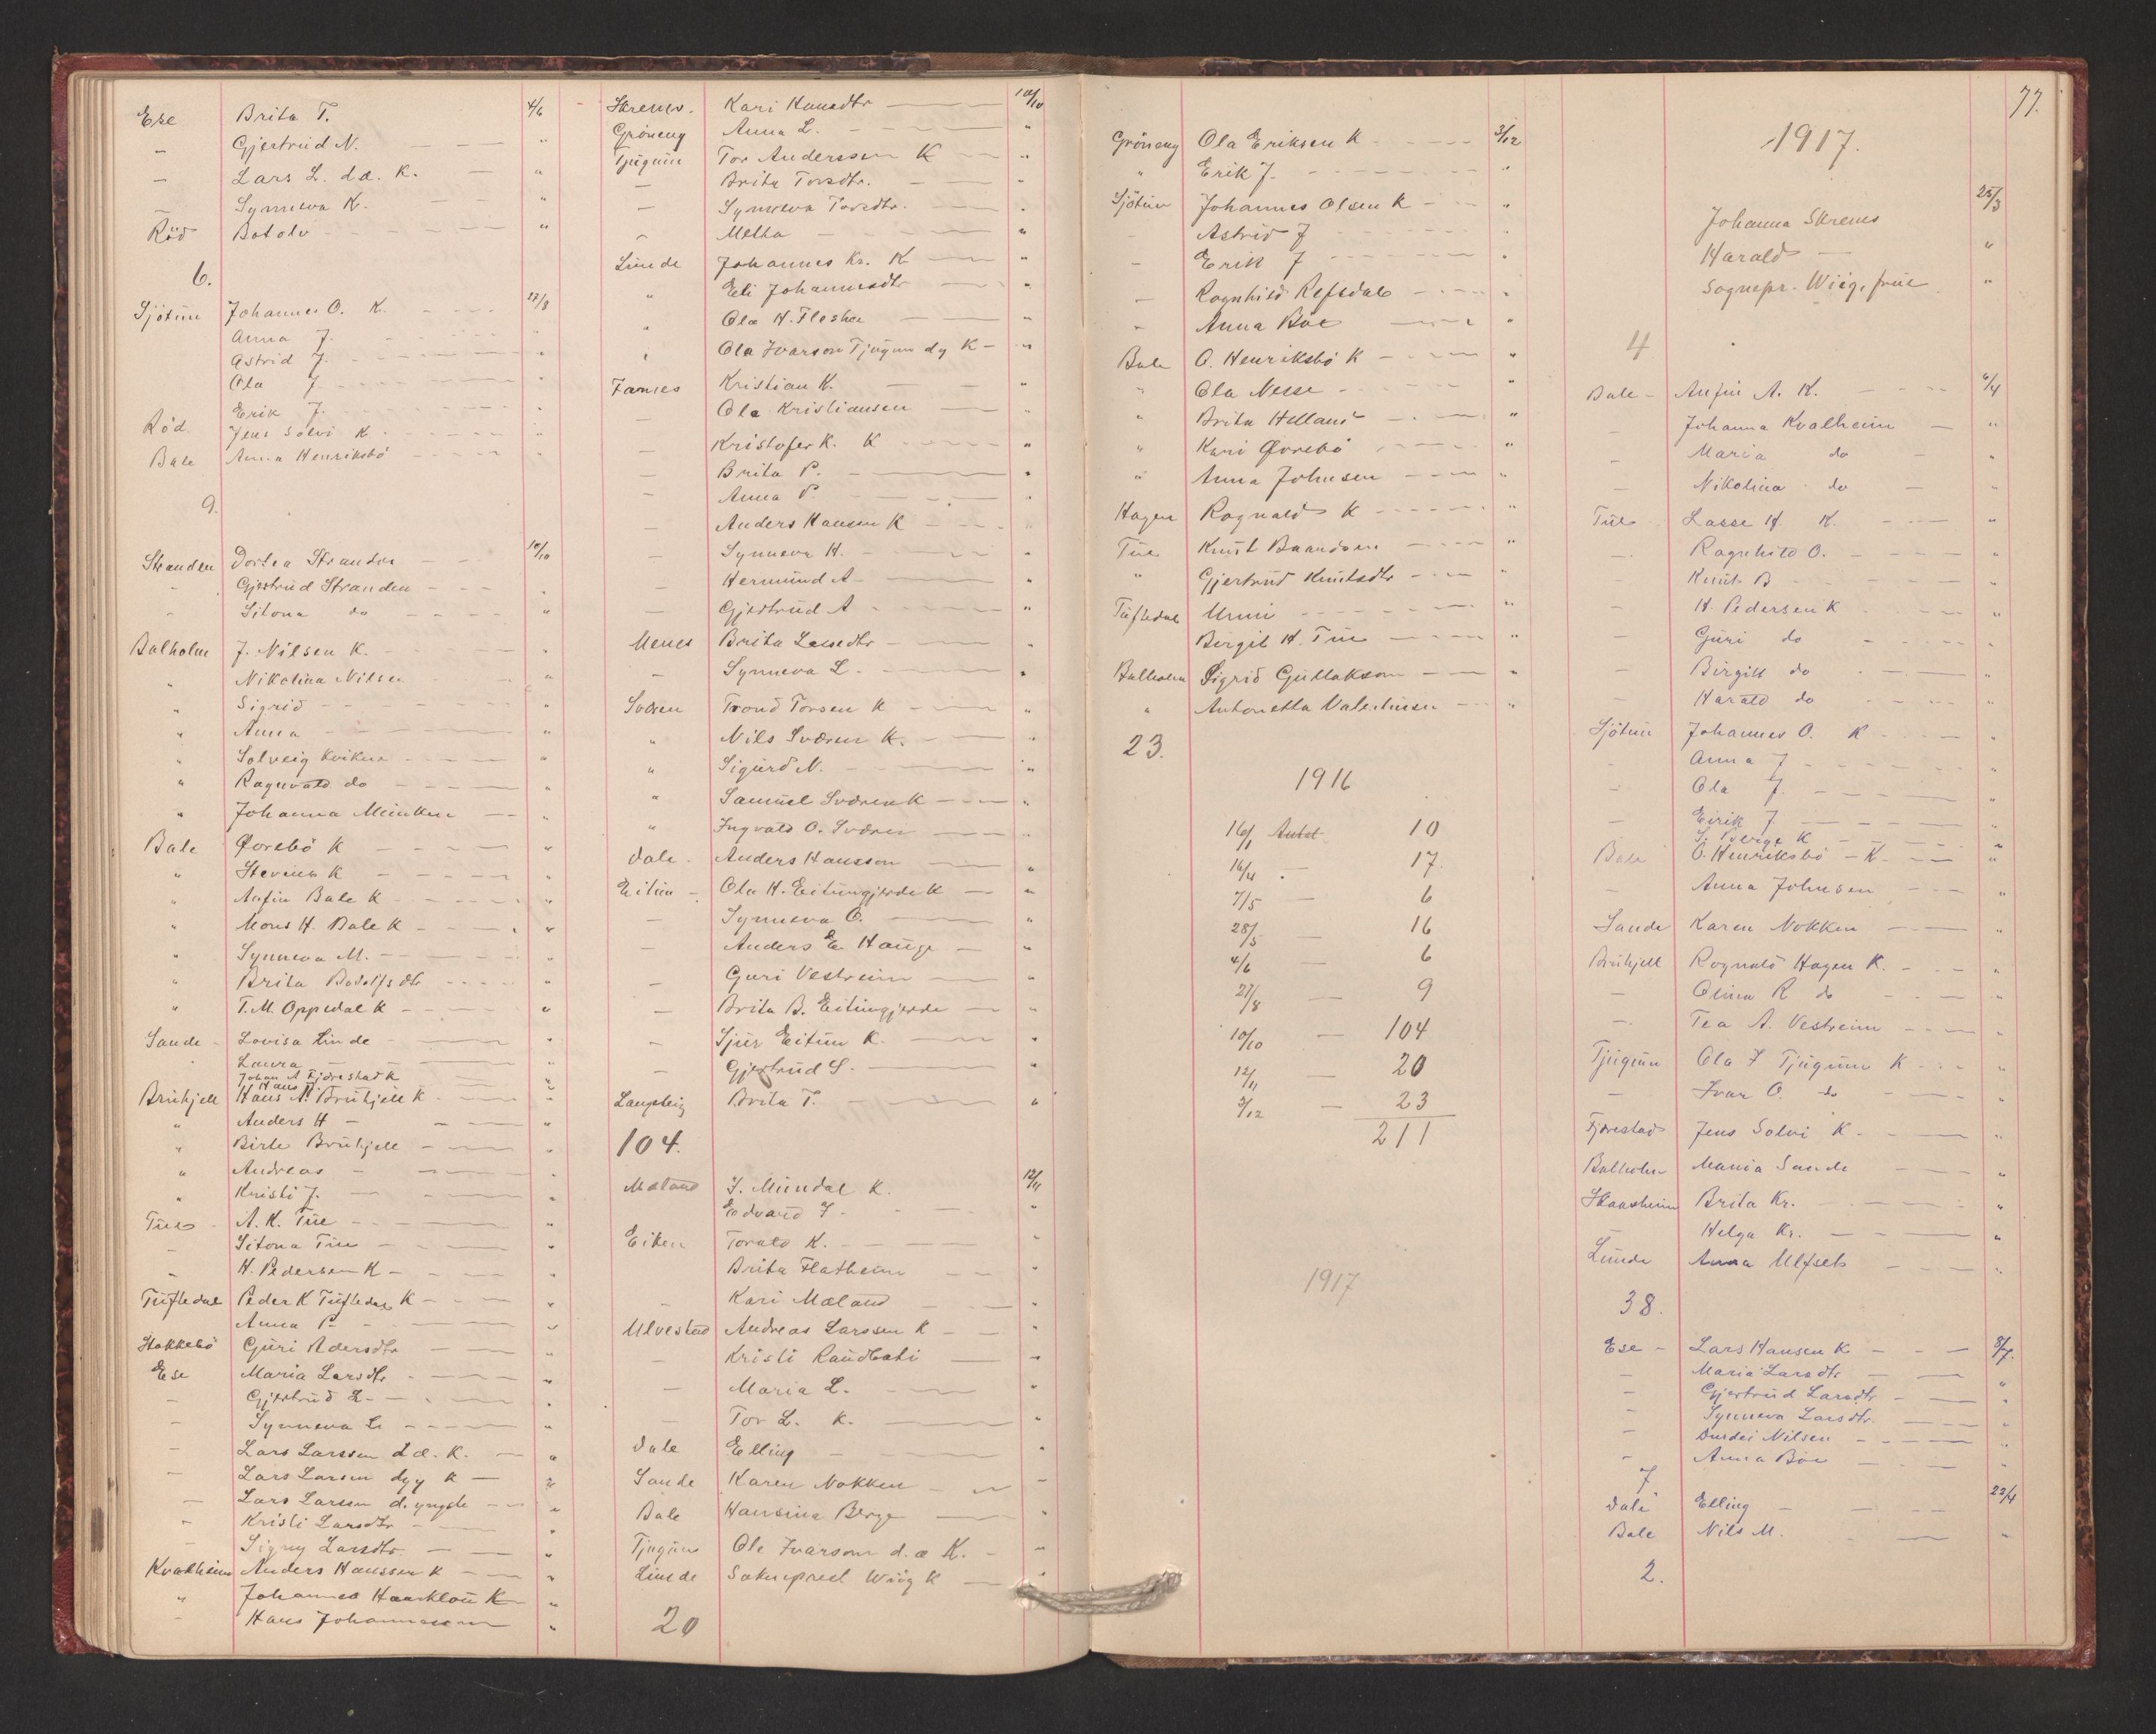 Ese Brita T. 4/6
— Gjertrud N. — — "
— Lars L. d.æ. K. — "
— Synneva K. — — "
Röd Botolv — — — "
6.
Sjötun Johannes O. K. — — 27/8
Anna J. — — "
Astrid J. — — "
Ola J. — — "
Erik J. — — "
Röd Jens Solvi K — — "
Bale Anna Henriksbö — — "
9.
Stranden Dortea Stranden — — 10/10
— Gjertrud Stranden — — "
— Sitona do — — "
Balholm J. Nilsen K. — — "
" Nikolina Nilsen — "
" Sigrid — — "
" Anna — — "
" Solveig Kvikne — — "
" Ragnvald do — — "
" Johanna Meinken — — "
Bale Övrebö K — — "
" Stevens K — — "
" Anfin Bale K — — "
" Mons H. Bale K — — "
" Synneva M. — — "
" Brita Bodolfsdtr — — "
" T. M. Oppedal K — — "
Sande - Lovisa Linde — — "
Laura — — "
Johan A Fjörestad K — "
Hans
Bruhjell Hans A. Bruhjell K — — "
" Anders H — — "
" Birte Bruhjell — — "
" Andreas — — "
" Kristi J. — — "
Tue - A. K. Tue — — "
— Sitona Tue — — "
— H. Pedersen K — — "
Tuftedal Peder K Tuftedal K — — "
Anna P. — — "
Stokkebö Guri Adersdtr — — "
Ese Maria Larsdtr — — "
— Gjertrud L. — — "
— Synneva L. — — "
— Lars Larssen d.æ. K. — "
— Lars Larsen dyy K — "
— Lars Larsen d. yngste — — "
— Kristi Larsdtr — "
— Signy Larsdtr. — — "
Kvalheim Anders Hanssen K — — "
" Johannes Haarklou K — "
— Hans Johannessen — "
Skrenes. Kari Hansdtr — — 10/10
Gröneng Anna L. — — "
Tjugum Tor Anderssen K — — "
— Brita Torsdtr. — — "
— Synneva Torsdtr. — — "
— Metha — — "
Linde Johannes Kr. K — — "
" Eli Johannesdtr — — "
" Ola H. Flesha — — "
" Ola Ivarson Tjugum dy K — "
Farnes Kristian K. — — "
— Ola Kristiansen — — "
— Kristofer K. K — — "
— Brita P. — — "
— Anna P. — — "
— Anders Hansen K — — "
— Synneva H. — — "
— Hermund A — — "
— Gjertrud A — — "
Menes Brita Lassedtr — — "
— Synneva L. — — "
Sværen Trond Torsen K — — "
" Nils Sværen K. — — "
" Sigurd N. — — "
" Samuel Sværen K — — "
" Ingvald O. Sværen — — "
Dale - Anders Hansson — — "
Eitun - Ola H. Eitungjerde K — "
— Synneva O. — — "
— Anders E. Hauge — "
— Guri Vestreim — — "
— Brita B. Eitungjerde — "
— Sjur Eitun K. — — "
— Gjertrud S. — — "
Langsteig Brita T. — — "
104.
Mæland J. Mundal K. 12/11
Edvard J. — — "
Eiken Torald K. — — "
Brita Flatheim — — "
— Kari Mæland — — "
Ulvestad Andreas Larssen K — — "
— Kristi — "
— Maria L. — — "
— Tor L. K. — — "
Dale Elling — — "
Sande Karen Nokken — — "
Bale Hansina Berge — "
Tjugum Ole Ivarson d.æ K. — "
Linde Sokneprest Wiig K — "
20
Gröneng Ola Eriksen K — — 3/12
" Erik J. — — "
Sjötun Johannes Olsen K — — "
— Astrid J — — "
— Erik J — — "
— Rognhild Refsdal — — "
— Anna Böe — — "
Bale O. Henriksbö K — — "
" Ola Nesse — — "
" Brita Helland — — "
" Kari Övrebö — — "
" Anna Johnsen — — "
Hagen Rognald K — — "
Tue Knut Baardsen — — "
" Gjertrud Knutsdtr — — "
Tuftedal Unni — — "
Birgit H. Tue — — "
Balholm Sigrid Gullakson — — "
" Antonetta Valentinsen — — "
23.
1916
16/1 Antal 10
16/4 — 17.
7/5 — 6
28/5 — 16
4/6 — 6
27/8 — 9
10/10 — 104
12/11 — 20
3/12 — 23
211
1917
77.
1917.
Johanna Skrenes 25/3
Harald — "
Sognepr. Wiig, frue "
4
Bale - Anfin A. K. — — 6/4
— Johanna Kvalheim — "
— Maria do — "
— Nikolina do — "
Tue Lasse H. K. — — "
— Ragnhild O. — — "
— Knut B — — "
— H. Pedersen K — — "
— Guri do — — "
— Birgitt do — — "
— Harald do — — "
Sjötun Johannes O. K — — "
— Anna J — — "
— Ola J. — — "
— Eirik J — — "
S. Berge K — — "
Bale O. Henriksbö - K. — — "
— Anna Johnsen — — "
Sande Karen Nokken — — "
Bruhjell Rognald Hagen K. — — "
— Olina R do — — "
— Tea A. Vestreim — — "
Tjugum Ola I Tjugum K — — "
— Ivar O. do — — "
Fjörestad Jens Solvi K — — "
Balholm Maria Sande — — "
Skaasheim Brita Kr. — — "
Helga Kr. — — "
Linde Anna Ulfset — — "
38.
Ese - Lars Hansen K — — 8/7.
— Maria Larsdtr — — "
— Gjertrud Larsdtr — — "
— Synneva Larsdtr. — — "
— Durdei Nilsen — — "
— Anna Böe — — "
7
Dale Elling — — 22/4
Bale Nils M. — — "
2.